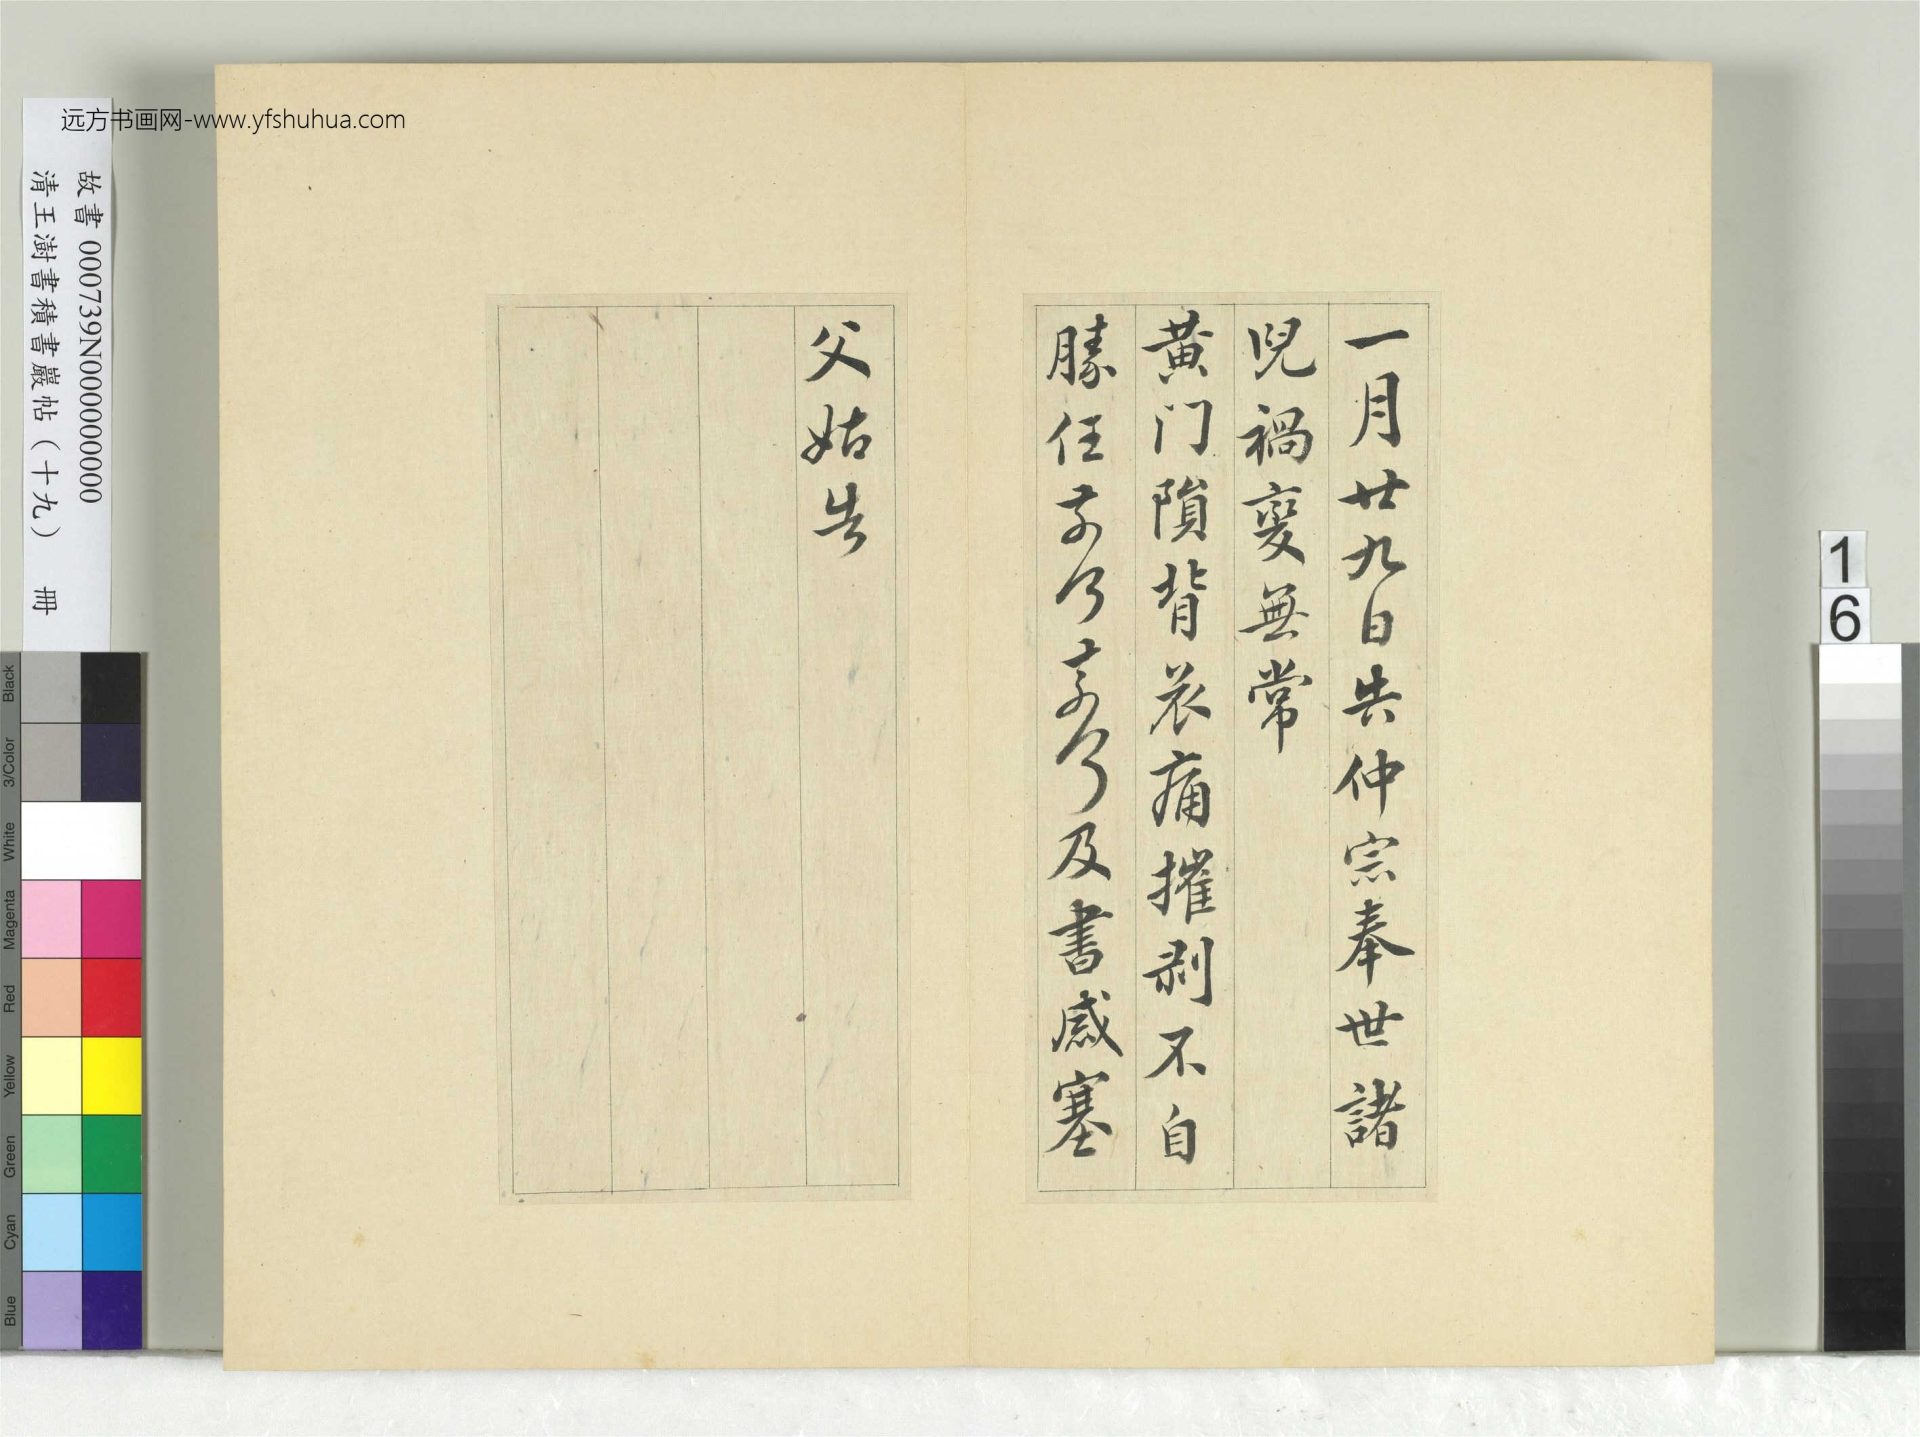 远方书画网-www.yfshuhua.com
故書 000739N000000000
清王澍書積書巖帖（十九） 冊
一月廿九日告仲宗奉世諸
兒禍變無常
黄门隕背哀痛摧剥不自
勝任奈何奈何及書感塞
父姑告
1
6
Black
3/Color
White
Magenta
Red
Yellow
Green
Cyan
Blue